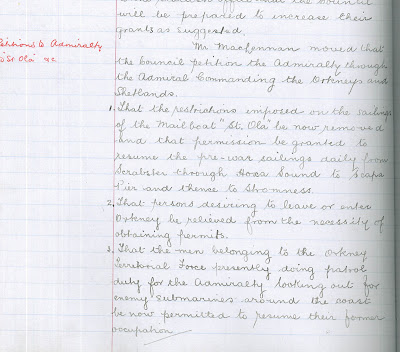 will be prepared to increase their
grants as suggested.
Petitions to Admiralty
"St Ola" &c
Mr. MacLennan moved that
the Council petition the Admiralty through
the Admiral Commanding the Orkneys and
Shetlands.
1. That the restrictions imposed on the sailings
of the Mailboat "St. Ola" be now removed
and that permission be granted to
resume the pre-war sailings daily from
Scrabster through Hoxa Sound to Scapa
Pier and thence to Stromness.
2. That persons desiring to leave or enter
Orkney be relieved from the necessity of
obtaining permits.
3. That the men belonging to the Orkney
Territorial Force presently doing patrol
duty for the Admiralty looking out for
enemy submarines around the coast
be now permitted to resume their former
occupation